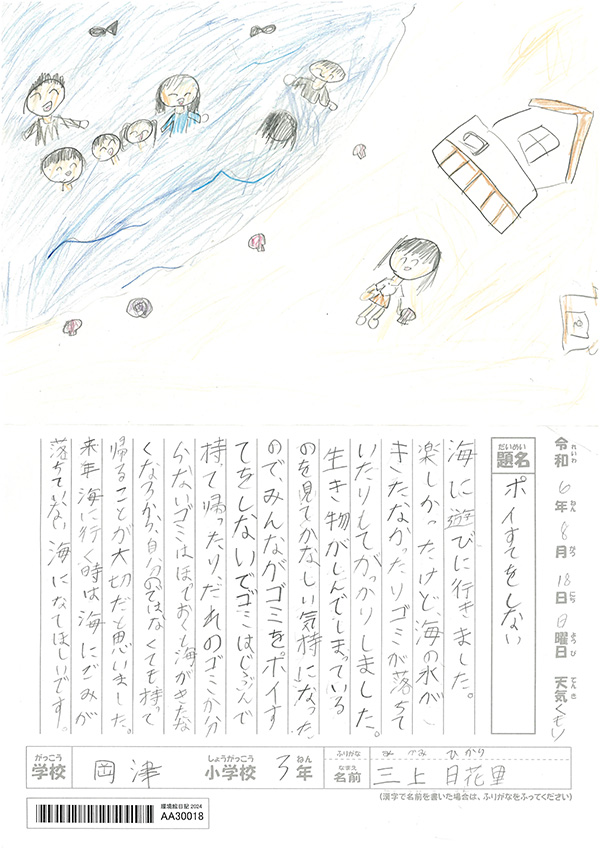 令和6年8月18日日曜日 天気くもり
れいわ ねん がつ にち ようび てんき
だいめい
題名 ポイすてをしない
海に遊びに行きました。
楽しかったけど、海の水が
きたなかったりゴミが落ちて
いたりしてがっかりしました。
生き物がしんでしまっている
のを見てかなしい気持になった
ので、みんながゴミをポイす
てをしないでゴミはじぶんで
持て帰ったり、だれのゴミか分
らないゴミはほっておくと海がきたな
くなるから、自分のではなくても持って
帰ることが大切だと思いました。
来年海に行く時は海にごみが
落ちていない海になてほしいです。
がっこう しょうがっこう ねん
学校 岡津 小学校 3年
ふりがな みかみ ひかり
なまえ
名前 三上日花里
(漢字で名前を書いた場合は、ふりがなをふってください)
環境絵日記2024
AA30018